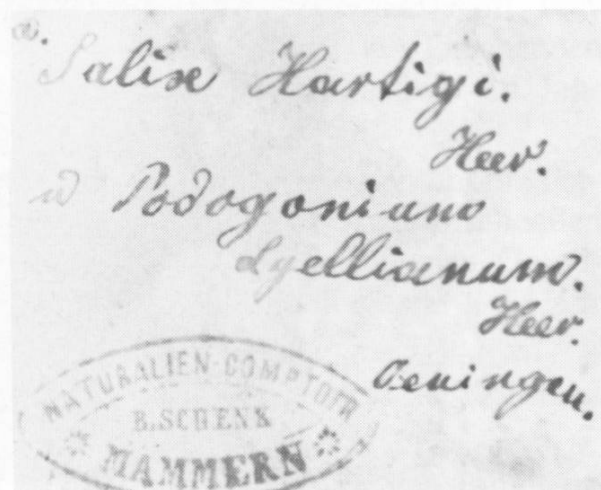 a.
Salix Hartigi.
Heer.
Podogonium
Lyellianum.
Heer.
Oeningen.
NATURALIEN-COMPTOIR
B. SCHENK
MAMMERN